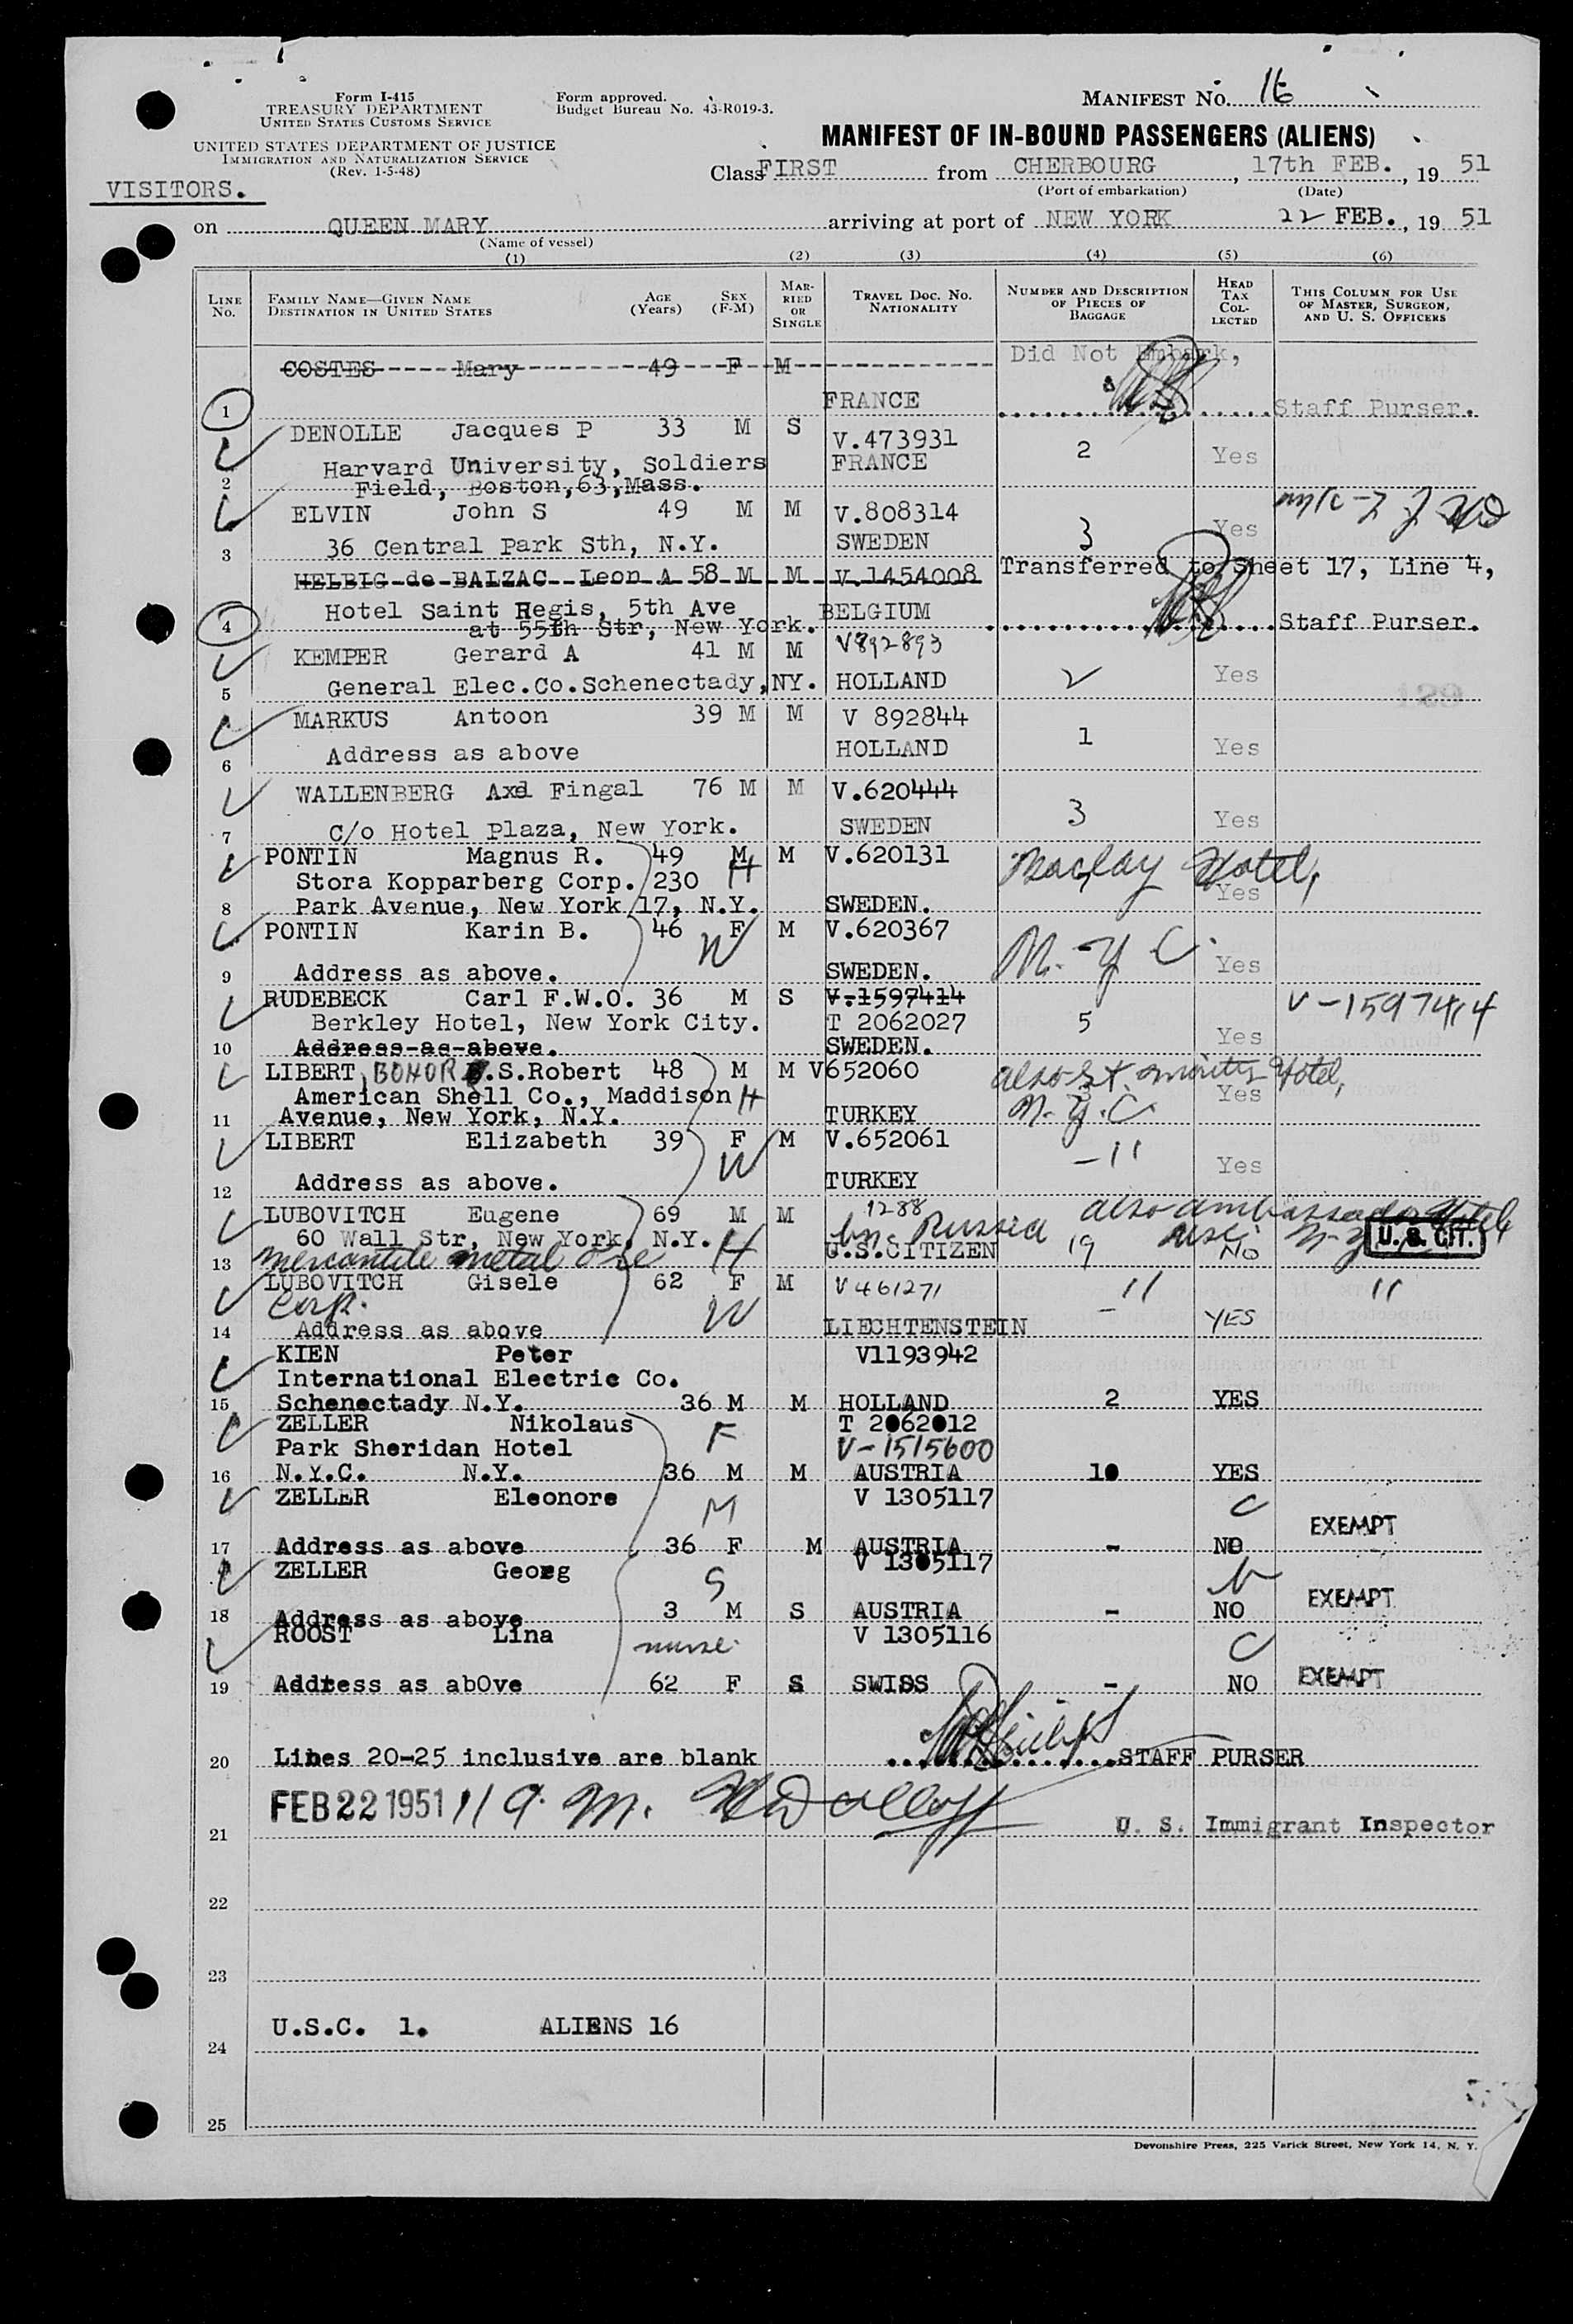 Form I-415
TREASURY DEPARTMENT
UNITED STATES CUSTOMS SERVICE
UNITED STATES DEPARTMENT OF JUSTICE
IMMIGRATION AND NATURALIZATION SERVICE
(Rev. 1-5-48)
VISITORS.
Form approved.
Budget Bureau No. 43-R019-3.
MANIFEST NO. 16
MANIFEST OF IN-BOUND PASSENGERS (ALIENS)
Class FIRST from CHERBOURG, 17th FEB., 19 51
(Port of embarkation) (Date)
on QUEEN MARY arriving at port of NEW YORK 22 FEB., 19 51
(Name of vessel)
(1) (2) (3) (4) (5) (6)
LINE No. FAMILY NAME—GIVEN NAME DESTINATION IN UNITED STATES AGE (Years) SEX (F-M) MARRIED OR SINGLE TRAVEL DOC. NO. NATIONALITY NUMBER AND DESCRIPTION OF PIECES OF BAGGAGE HEAD TAX COLLECTED THIS COLUMN FOR USE OF MASTER, SURGEON, AND U. S. OFFICERS
COSTES Mary 49 F M Did Not Embark,
1 FRANCE Staff Purser.
DENOLLE Jacques P 33 M S V.473931 2 Yes
Harvard University, Soldiers FRANCE
2 Field, Boston,63,Mass.
ELVIN John S 49 M M V.808314 3 Yes
3 36 Central Park Sth, N.Y. SWEDEN
HELBIG de BALZAC Leon A 58 M M V 1454008 Transferred to Sheet 17, Line 4,
Hotel Saint Regis, 5th Ave BELGIUM
4 at 55th Str, New York. Staff Purser.
KEMPER Gerard A 41 M M V892893
5 General Elec.Co.Schenectady,NY. HOLLAND 2 Yes
MARKUS Antoon 39 M M V 892844 1
6 Address as above HOLLAND Yes
WALLENBERG Axel Fingal 76 M M V.620444 3
7 C/o Hotel Plaza, New York. SWEDEN Yes
PONTIN Magnus R. 49 M M V.620131
Stora Kopparberg Corp. 230 H Barclay Hotel,
8 Park Avenue, New York 17, N.Y. SWEDEN. Yes
PONTIN Karin B. 46 F M V.620367 N.Y.C.
W
9 Address as above. SWEDEN. Yes
RUDEBECK Carl F.W.O. 36 M S V-1597414 V-1597414
Berkley Hotel, New York City. T 2062027 5
10 Address as above. SWEDEN. Yes
LIBERT, BOHOR .S.Robert 48 M M V652060 also St. Moritz Hotel,
American Shell Co., Maddison H 3 Yes
11 Avenue, New York, N.Y. TURKEY N.Y.C.
LIBERT Elizabeth 39 F M V.652061 - 11
W Yes
12 Address as above. TURKEY
LUBOVITCH Eugene 69 M M 1288 also Ambassador Hotel,
60 Wall Str, New York, N.Y. H bn. Russia
13 Mercantile Metal Ore U.S.CITIZEN 19 No U. S. CIT.
LUBOVITCH Gisele 62 F M V461271 11 11
Corp. W
14 Address as above LIECHTENSTEIN - YES
KIEN Peter V1193942
International Electric Co.
15 Schenectady N.Y. 36 M M HOLLAND 2 YES
ZELLER Nikolaus T 2062012
Park Sheridan Hotel F V-1515600
16 N.Y.C. N.Y. 36 M M AUSTRIA 10 YES
ZELLER Eleonore M V 1305117 C
EXEMPT
17 Address as above 36 F M AUSTRIA - NO
ZELLER Georg S V 1305117
EXEMPT
18 Address as above 3 M S AUSTRIA - NO
ROOST Lina nurse V 1305116 C
19 Address as abOve 62 F S SWISS - NO EXEMPT
20 Lines 20-25 inclusive are blank STAFF PURSER
FEB 22 1951 11 A. M.
21 U. S. Immigrant Inspector
22
23
U.S.C. 1. ALIENS 16
24
25
Devonshire Press, 225 Varick Street, New York 14, N. Y.